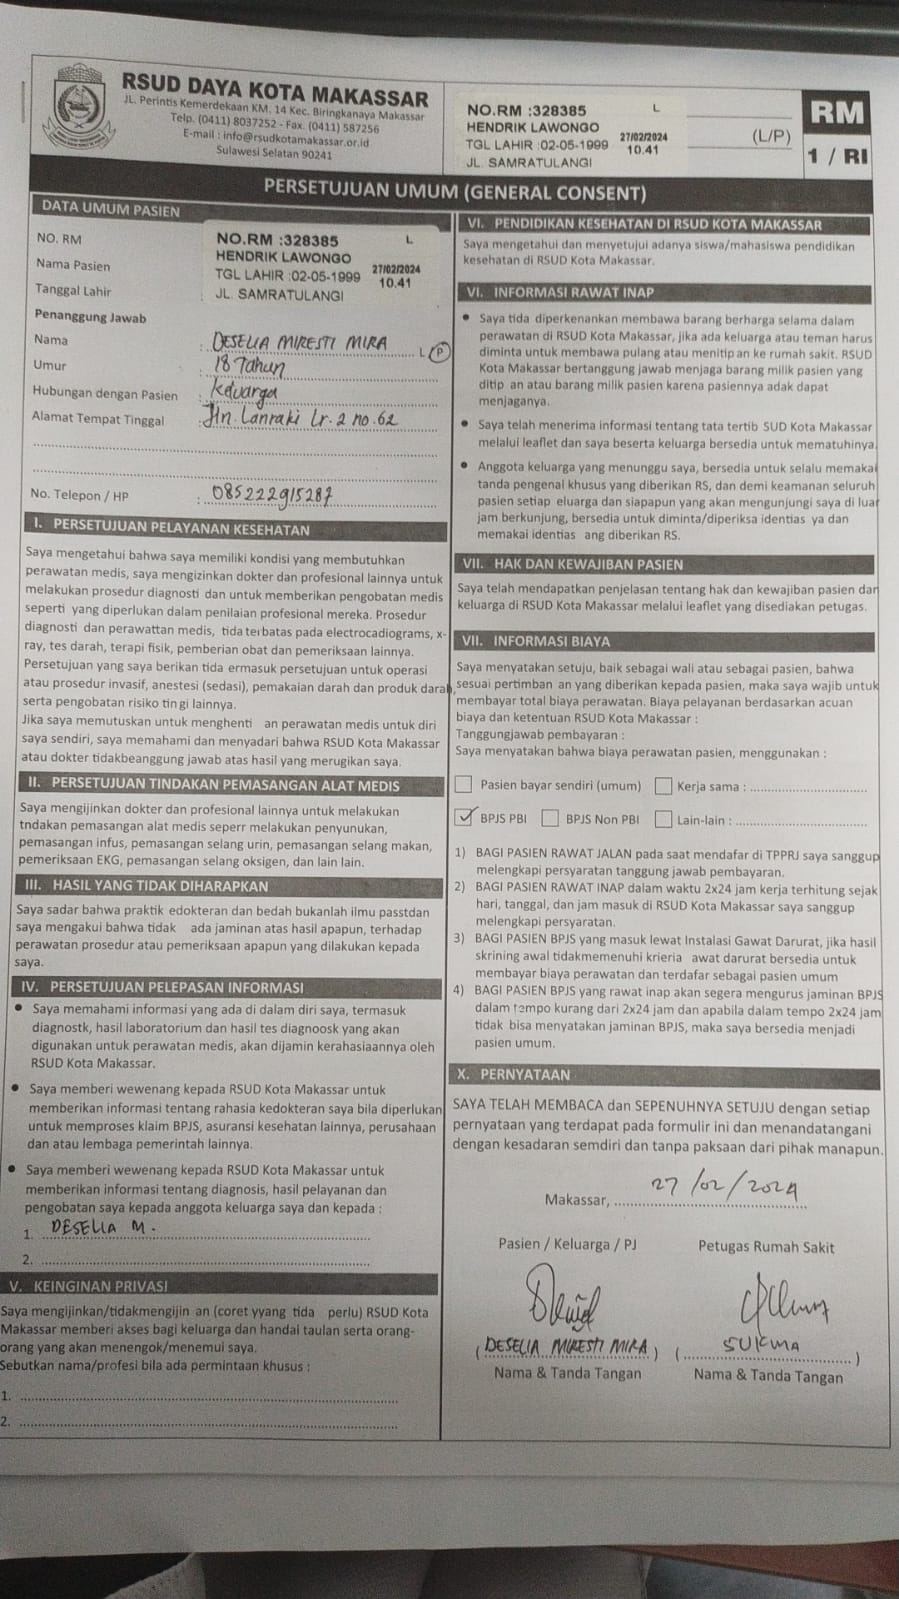 RSUD DAYA KOTA MAKASSAR
JL. Perintis Kemerdekaan KM. 14 Kec. Biringkanaya Makassar
Telp. (0411) 8037252 - Fax. (0411) 587256
E-mail : info@rsudkotamakassar.or.id
Sulawesi Selatan 90241
NO.RM :328385 L
HENDRIK LAWONGO
TGL LAHIR :02-05-1999 27/02/2024
JL. SAMRATULANGI 10.41
(L/P)
RM
1 / RI
PERSETUJUAN UMUM (GENERAL CONSENT)
DATA UMUM PASIEN
NO. RM
Nama Pasien
Tanggal Lahir
NO.RM :328385 L
HENDRIK LAWONGO
TGL LAHIR :02-05-1999 27/02/2024
JL. SAMRATULANGI 10.41
Penanggung Jawab
Nama : DESELIA MIRESTI MIRA L P
Umur : 18 Tahun
Hubungan dengan Pasien : Keluarga
Alamat Tempat Tinggal : Jln. Lanraki Lr. 2 no. 62
No. Telepon / HP : 085222915287
I. PERSETUJUAN PELAYANAN KESEHATAN
Saya mengetahui bahwa saya memiliki kondisi yang membutuhkan
perawatan medis, saya mengizinkan dokter dan profesional lainnya untuk
melakukan prosedur diagnosti dan untuk memberikan pengobatan medis
seperti yang diperlukan dalam penilaian profesional mereka. Prosedur
diagnosti dan perawattan medis, tida terbatas pada electrocadiograms, x-
ray, tes darah, terapi fisik, pemberian obat dan pemeriksaan lainnya.
Persetujuan yang saya berikan tida ermasuk persetujuan untuk operasi
atau prosedur invasif, anestesi (sedasi), pemakaian darah dan produk darah,
serta pengobatan risiko tin gi lainnya.
Jika saya memutuskan untuk menghenti an perawatan medis untuk diri
saya sendiri, saya memahami dan menyadari bahwa RSUD Kota Makassar
atau dokter tidakbeanggung jawab atas hasil yang merugikan saya.
II. PERSETUJUAN TINDAKAN PEMASANGAN ALAT MEDIS
Saya mengijinkan dokter dan profesional lainnya untuk melakukan
tndakan pemasangan alat medis seperr melakukan penyunukan,
pemasangan infus, pemasangan selang urin, pemasangan selang makan,
pemeriksaan EKG, pemasangan selang oksigen, dan lain lain.
III. HASIL YANG TIDAK DIHARAPKAN
Saya sadar bahwa praktik edokteran dan bedah bukanlah ilmu passtdan
saya mengakui bahwa tidak ada jaminan atas hasil apapun, terhadap
perawatan prosedur atau pemeriksaan apapun yang dilakukan kepada
saya.
IV. PERSETUJUAN PELEPASAN INFORMASI
• Saya memahami informasi yang ada di dalam diri saya, termasuk
diagnostk, hasil laboratorium dan hasil tes diagnoosk yang akan
digunakan untuk perawatan medis, akan dijamin kerahasiaannya oleh
RSUD Kota Makassar.
• Saya memberi wewenang kepada RSUD Kota Makassar untuk
memberikan informasi tentang rahasia kedokteran saya bila diperlukan
untuk memproses klaim BPJS, asuransi kesehatan lainnya, perusahaan
dan atau lembaga pemerintah lainnya.
• Saya memberi wewenang kepada RSUD Kota Makassar untuk
memberikan informasi tentang diagnosis, hasil pelayanan dan
pengobatan saya kepada anggota keluarga saya dan kepada :
1. DESELIA M.
2.
V. KEINGINAN PRIVASI
Saya mengijinkan/tidakmengijin an (coret yyang tida perlu) RSUD Kota
Makassar memberi akses bagi keluarga dan handai taulan serta orang-
orang yang akan menengok/menemui saya.
Sebutkan nama/profesi bila ada permintaan khusus :
1.
2.
VI. PENDIDIKAN KESEHATAN DI RSUD KOTA MAKASSAR
Saya mengetahui dan menyetujui adanya siswa/mahasiswa pendidikan
kesehatan di RSUD Kota Makassar.
VI. INFORMASI RAWAT INAP
• Saya tida diperkenankan membawa barang berharga selama dalam
perawatan di RSUD Kota Makassar, jika ada keluarga atau teman harus
diminta untuk membawa pulang atau menitip an ke rumah sakit. RSUD
Kota Makassar bertanggung jawab menjaga barang milik pasien yang
ditip an atau barang milik pasien karena pasiennya adak dapat
menjaganya.
• Saya telah menerima informasi tentang tata tertib SUD Kota Makassar
melalui leaflet dan saya beserta keluarga bersedia untuk mematuhinya.
• Anggota keluarga yang menunggu saya, bersedia untuk selalu memakai
tanda pengenal khusus yang diberikan RS, dan demi keamanan seluruh
pasien setiap eluarga dan siapapun yang akan mengunjungi saya di luar
jam berkunjung, bersedia untuk diminta/diperiksa identias ya dan
memakai identias ang diberikan RS.
VII. HAK DAN KEWAJIBAN PASIEN
Saya telah mendapatkan penjelasan tentang hak dan kewajiban pasien dan
keluarga di RSUD Kota Makassar melalui leaflet yang disediakan petugas.
VII. INFORMASI BIAYA
Saya menyatakan setuju, baik sebagai wali atau sebagai pasien, bahwa
sesuai pertimban an yang diberikan kepada pasien, maka saya wajib untuk
membayar total biaya perawatan. Biaya pelayanan berdasarkan acuan
biaya dan ketentuan RSUD Kota Makassar :
Tanggungjawab pembayaran :
Saya menyatakan bahwa biaya perawatan pasien, menggunakan :
Pasien bayar sendiri (umum) Kerja sama :
✓ BPJS PBI BPJS Non PBI Lain-lain :
1) BAGI PASIEN RAWAT JALAN pada saat mendafar di TPPRJ saya sanggup
melengkapi persyaratan tanggung jawab pembayaran.
2) BAGI PASIEN RAWAT INAP dalam waktu 2x24 jam kerja terhitung sejak
hari, tanggal, dan jam masuk di RSUD Kota Makassar saya sanggup
melengkapi persyaratan.
3) BAGI PASIEN BPJS yang masuk lewat Instalasi Gawat Darurat, jika hasil
skrining awal tidakmemenuhi krieria awat darurat bersedia untuk
membayar biaya perawatan dan terdafar sebagai pasien umum
4) BAGI PASIEN BPJS yang rawat inap akan segera mengurus jaminan BPJS
dalam tempo kurang dari 2x24 jam dan apabila dalam tempo 2x24 jam
tidak bisa menyatakan jaminan BPJS, maka saya bersedia menjadi
pasien umum.
X. PERNYATAAN
SAYA TELAH MEMBACA dan SEPENUHNYA SETUJU dengan setiap
pernyataan yang terdapat pada formulir ini dan menandatangani
dengan kesadaran semdiri dan tanpa paksaan dari pihak manapun.
Makassar, 27/02/2024
Pasien / Keluarga / PJ Petugas Rumah Sakit
( DESELIA MIRESTI MIRA ) ( SUKMA )
Nama & Tanda Tangan Nama & Tanda Tangan